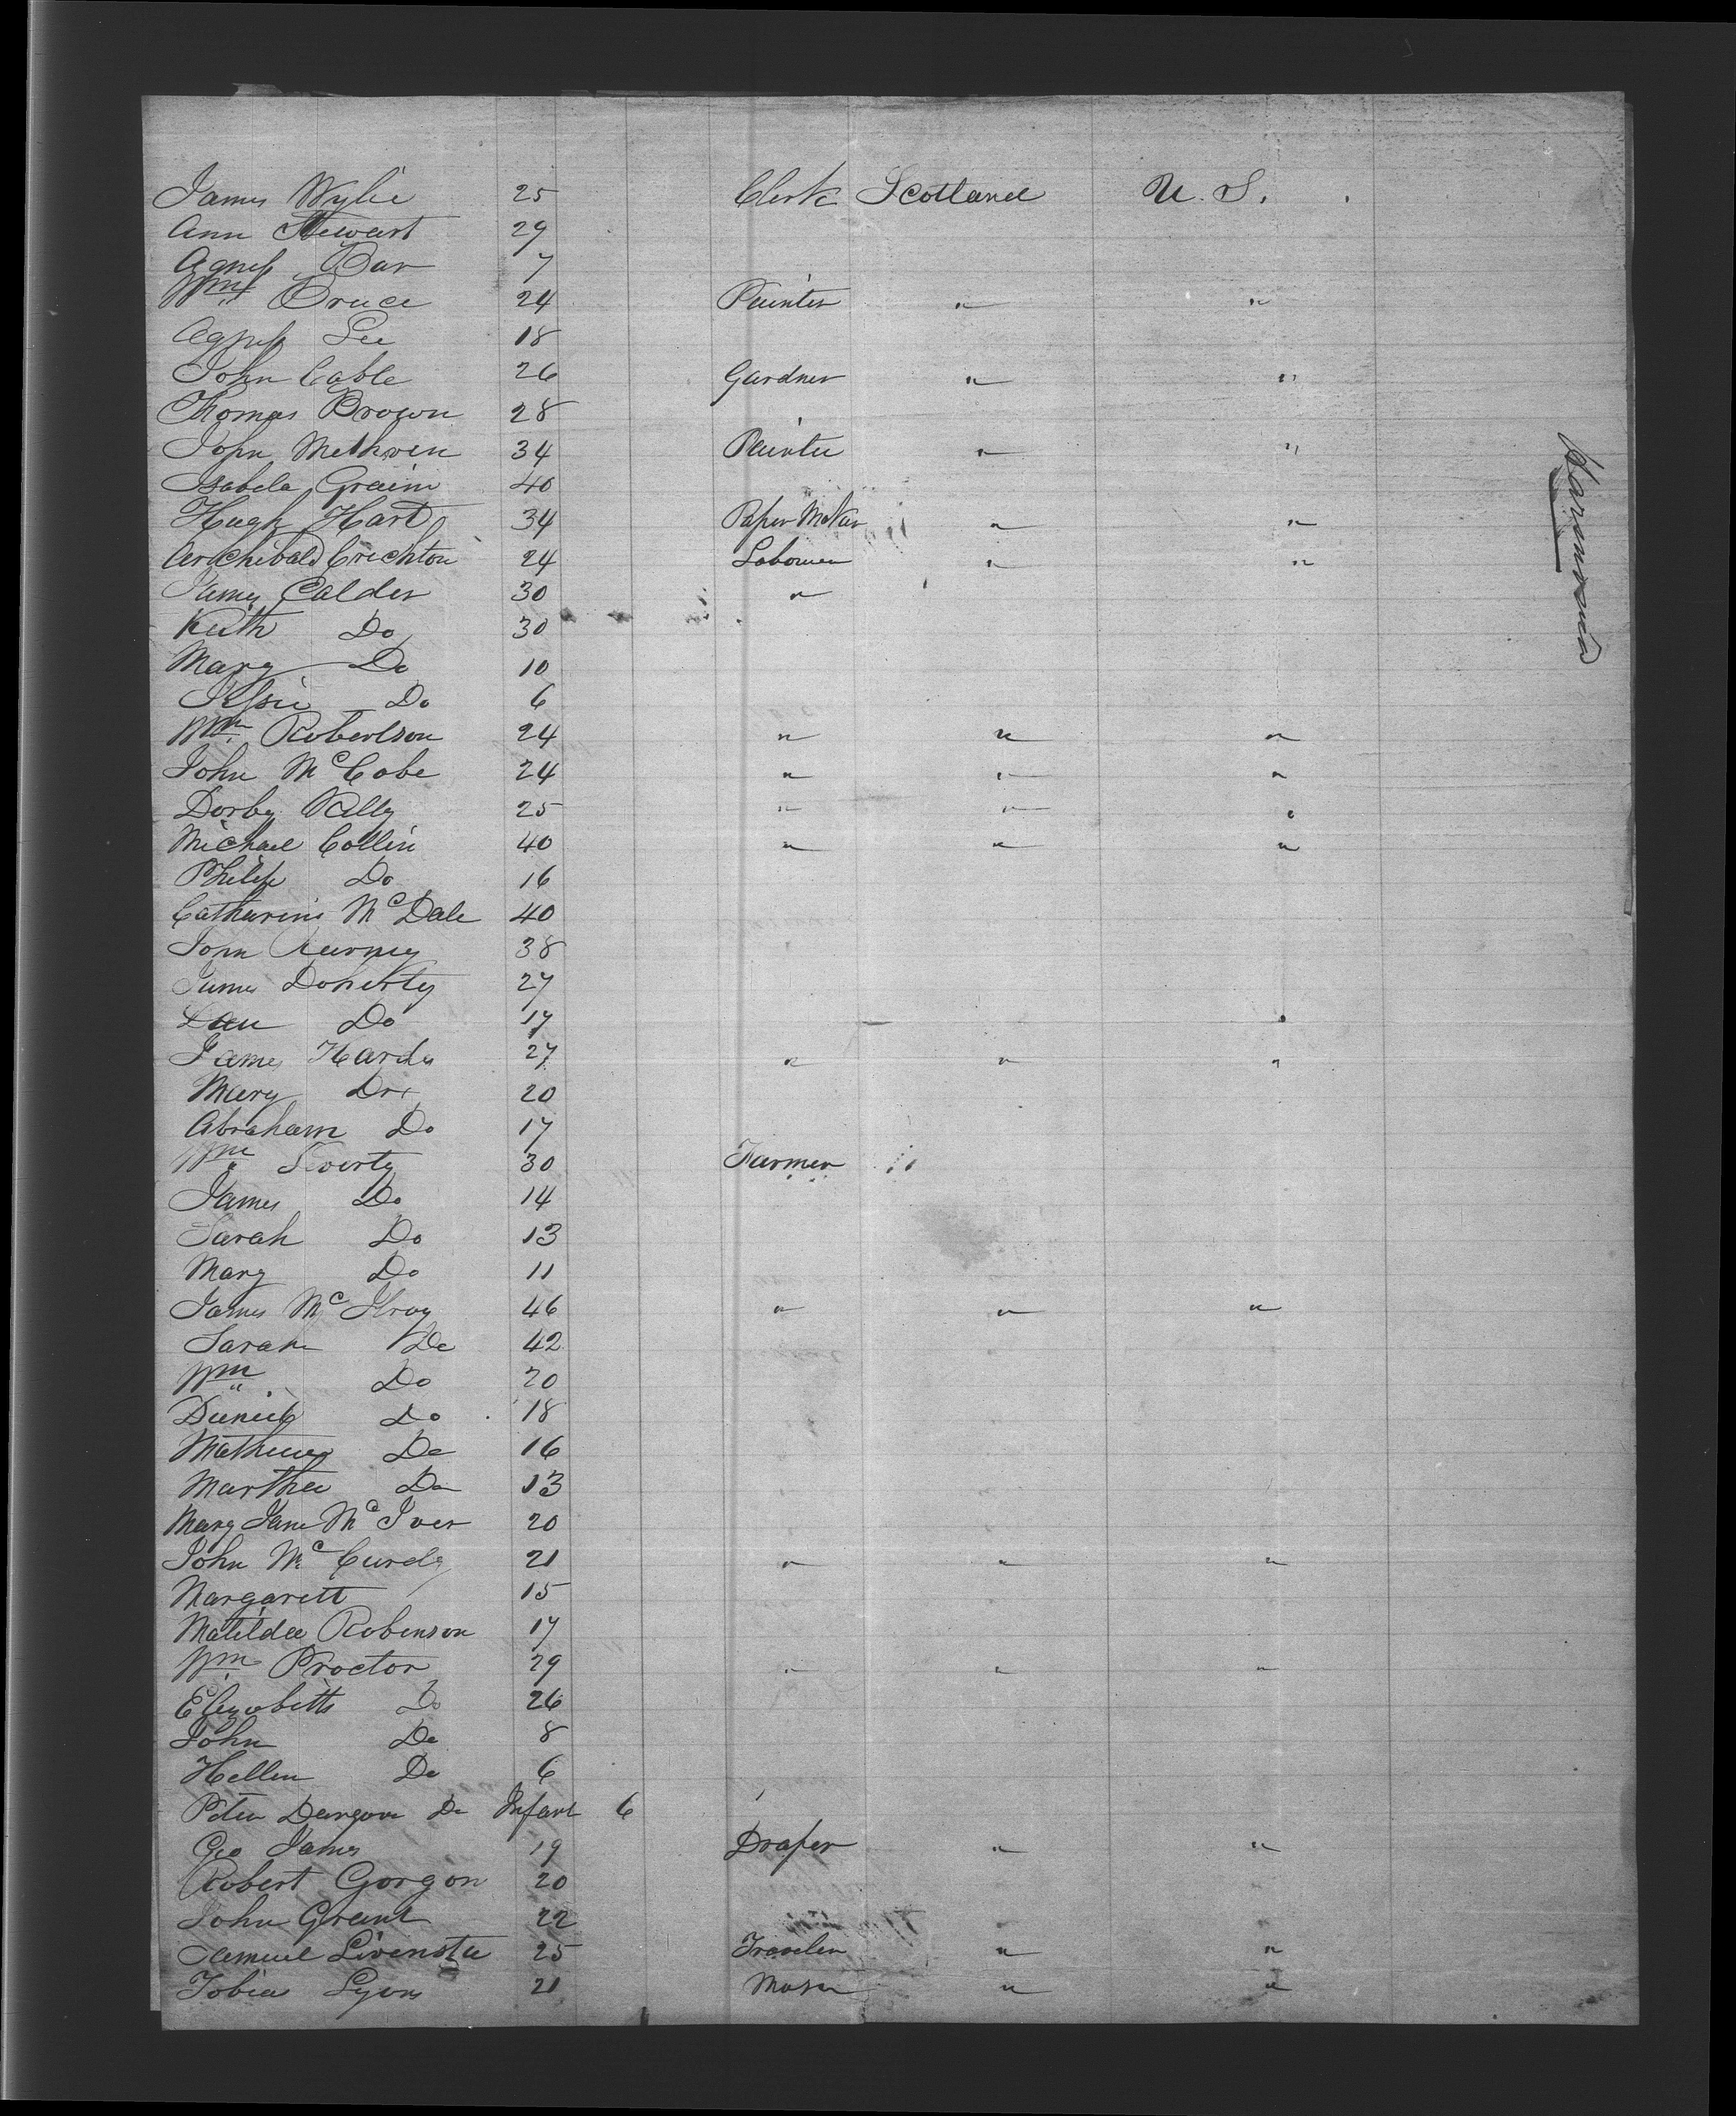 James Wylie 25 Clerk Scotland U. S.
Ann Stewart 29
Agness Bar 7
Wm Bruce 24 Painter " "
Agness Lee 18
John Cable 26 Gardner " "
Thomas Brown 28
John Methven 34 Painter " "
Isabela Graim 40
Hugh Hart 34 Paper Maker " "
Archibald Crichton 24 Labourer " "
James Calder 30 "
Do 30
Mary Do 10
Jessie Do 6
Wm Robertson 24 " " "
John McCabe 24 " " "
Dorby Kelly 25 " " "
Michael Collin 40 " " "
Philip Do 16
Catharine McDale 40
John Kearney 38
James Doherty 27
Do 17
James Hardy 27 " " "
Mary Do 20
Abraham Do 17
Wm 30 Farmer
James Do 14
Sarah Do 13
Mary Do 11
James McIlroy 46 " " "
Sarah Do 42
Wm Do 20
Daniel Do 18
Mathew Do 16
Martha Do 13
Mary Jane McIver 20
John McCurdy 21 " " "
Margarett 15
Matilda Robinson 17
Wm Proctor 29 " " "
Elizabeth Do 26
John Do 8
Hellen Do 6
Peter Do Infant 6
Geo James 19 Draper " "
Robert Gorgon 20
John Grant 22
Samuel 25 Traveler " "
Tobias Lyons 21 Mason " "